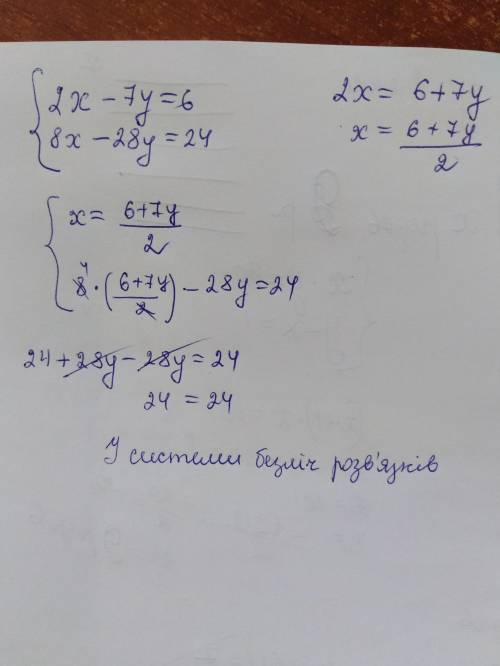 2x − 7y = 6
8x − 28y = 24
2x = 6 + 7y
x = (6 + 7y)/2
x = (6+7y)/2
8⁴ · ((6+7y)/2) − 28y = 24
24 + 28y − 28y = 24
24 = 24
У системи безліч розв'язків